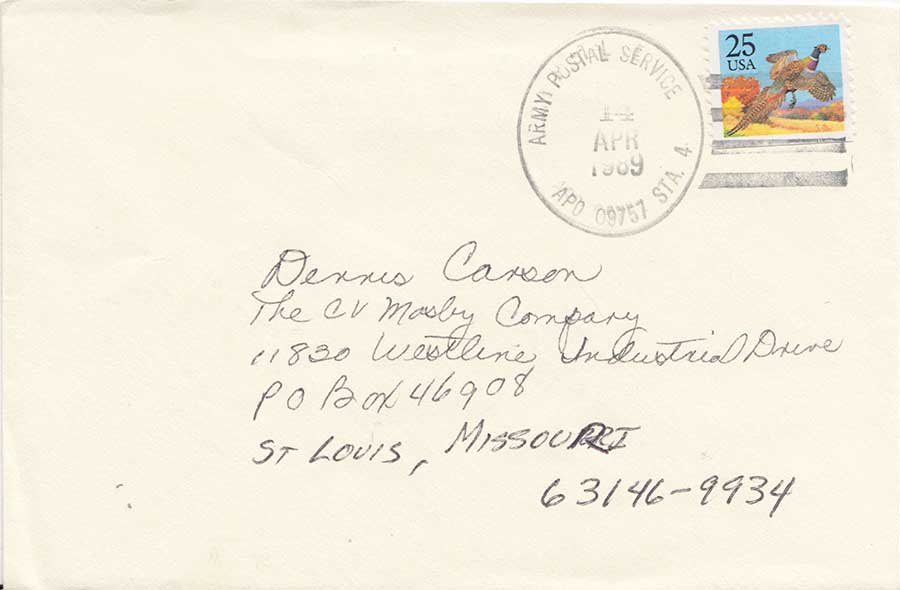 25
USA
ARMY POSTAL SERVICE
14
APR
1989
APO 09757 STA. 4
Dennis Carson
The CV Mosby Company
11830 Westline Industrial Drive
PO Box 46908
ST LOUIS, MISSOURI
63146-9934